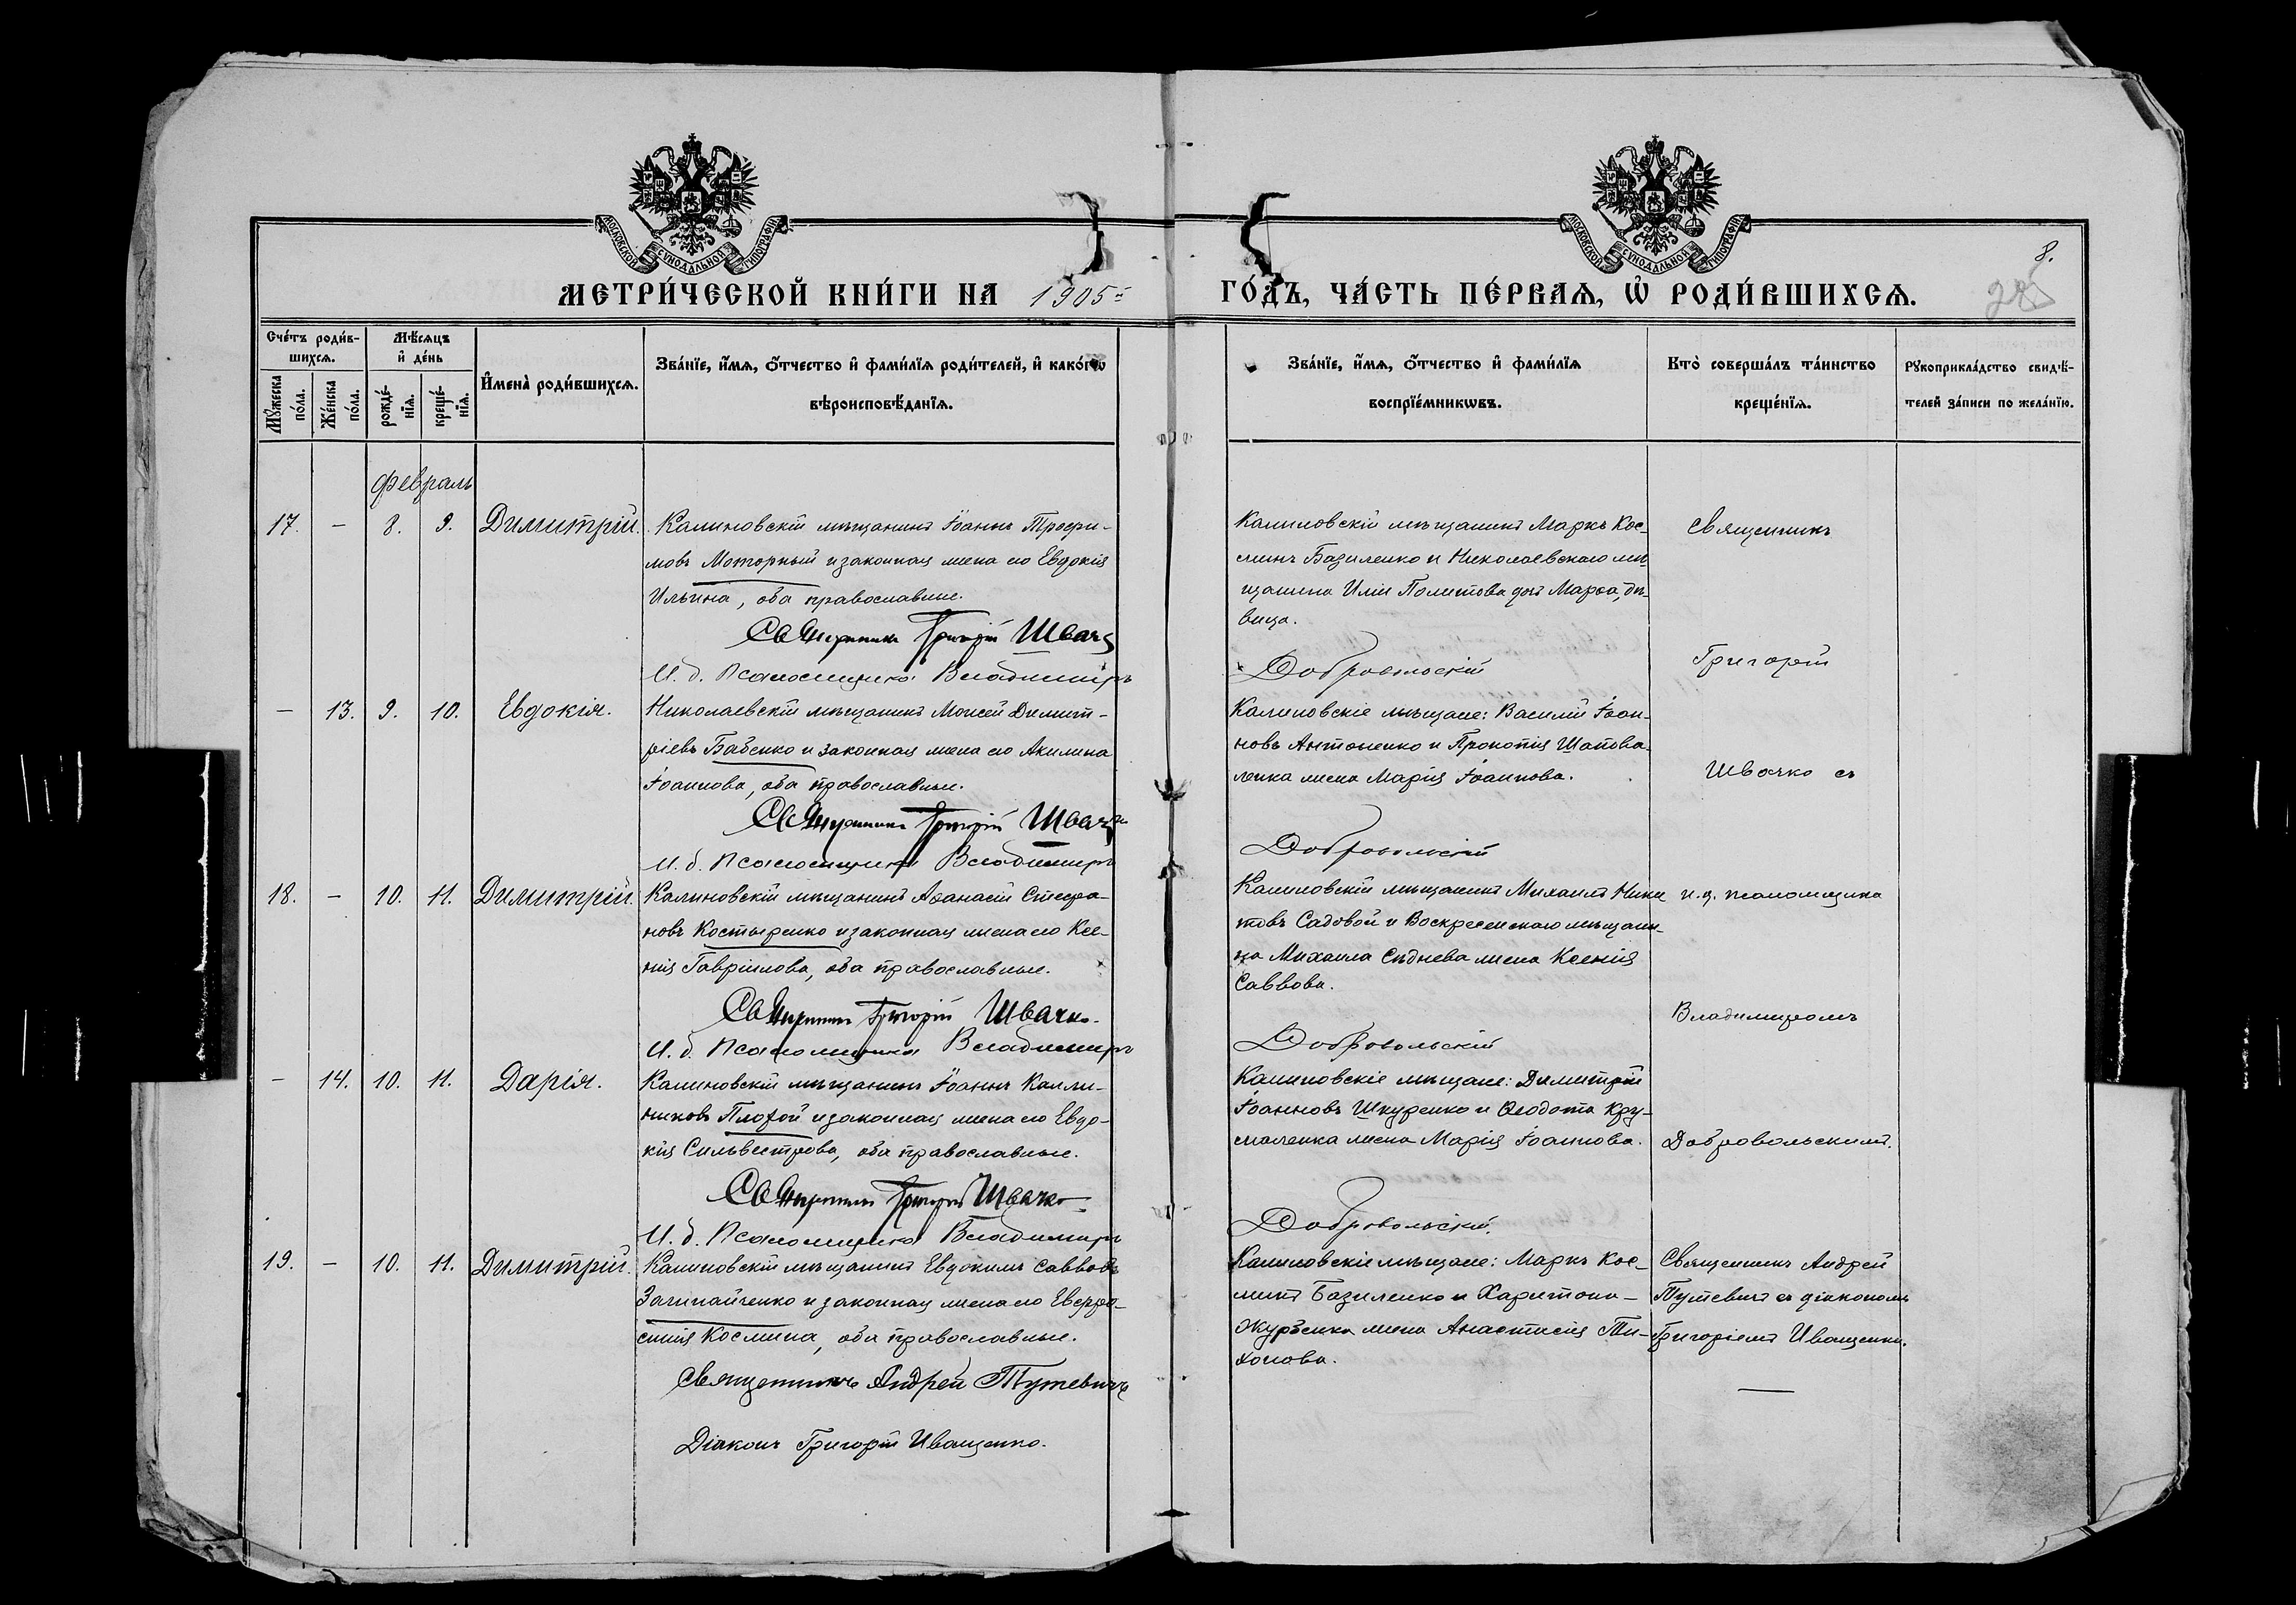 МОСКОВСКОЙ СУНОДАЛЬНОЙ ТИПОГРАФІИ
МОСКОВСКОЙ СУНОДАЛЬНОЙ ТИПОГРАФІИ
8.
МЕТРИ́ЧЕСКОЙ КНИ́ГИ НА 1905
ГО́ДЪ, ЧА́СТЬ ПЕ́РВАѦ, Ѡ҆ РОДИ́ВШИХСѦ.
Сче́тъ роди́в-
шихсѧ.
Мꙋ́жеска по́ла.
Же́нска по́ла.
Мѣ́сѧцъ
и҆ де́нь
рожде́-
нїѧ.
креще́-
нїѧ.
И҆мена̀ роди́вшихсѧ.
Зва́нїе, и҆́мѧ, ѻ҆́тчество и҆ фами́лїѧ роди́телей, и҆ како́гѡ
вѣроисповѣ́данїѧ.
Зва́нїе, и҆́мѧ, ѻ҆́тчество и҆ фами́лїѧ
воспрїе́мникѡвъ.
Кто̀ соверша́лъ та́инство
креще́нїѧ.
Рꙋкоприкла́дство свидѣ́-
телей за́писи по жела́нїю.
Февраль
17. — 8. 9. Димитрій.
Калиновскій мѣщанинъ Іоаннъ Трофи-
мовъ Моторный и законная жена его Евдокія
Ильина, оба православные.
Священникъ Григорій Швачко
И. д. Псаломщика Владиміръ
Калиновскій мѣщанинъ Маркъ Кос-
минъ Базиленко и Николаевскаго мѣ-
щанина Иліи Политова дочь Марѳа, дѣ-
вица.
Добровольскій
Священникъ
Григорій
— 13. 9. 10. Евдокія.
Николаевскій мѣщанинъ Моисей Димит-
ріевъ Бабенко и законная жена его Акилина
Іоаннова, оба православные.
Священникъ Григорій Швачко
И. д. Псаломщика Владиміръ
Калиновскіе мѣщане: Василій Іоан-
новъ Антоненко и Прокопія Шапова-
ленка жена Марія Іоаннова.
Добровольскій
Швачко съ
18. — 10. 11. Димитрій.
Калиновскій мѣщанинъ Аѳанасій Стефа-
новъ Костыренко и законная жена его Ксе-
нія Гавріилова, оба православные.
Священникъ Григорій Швачко.
И. д. Псаломщика Владиміръ
Калиновскій мѣщанинъ Михаилъ Ники
товъ Садовой и Воскресенскаго мѣщани-
на Михаила Сѣднева жена Ксенія
Саввова.
Добровольскій
и. д. псаломщика
Владиміромъ
— 14. 10. 11. Дарія.
Калиновскій мѣщанинъ Іоаннъ Калли-
никовъ Плохой и законная жена его Евдо-
кія Сильвестрова, оба православные.
Священникъ Григорій Швачко
И. д. Псаломщика Владиміръ
Калиновскіе мѣщане: Димитрій
Іоанновъ Шкуренко и Ѳеодота Кру-
жаленка жена Марія Іоаннова.
Добровольскій.
Добровольскимъ.
19. — 10. 11. Димитрій.
Калиновскій мѣщанинъ Евдокимъ Саввовъ
Загинайченко и законная жена его Евфро-
синія Космина, оба православные.
Священникъ Андрей Путевичъ
Діаконъ Григорій Иващенко.
Калиновскіе мѣщане: Маркъ Кос-
минъ Базиленко и Харитона
Журбенка жена Анастасія Ти-
хонова.
Священникъ Андрей
Путевичъ съ діакономъ
Григоріемъ Иващенко.